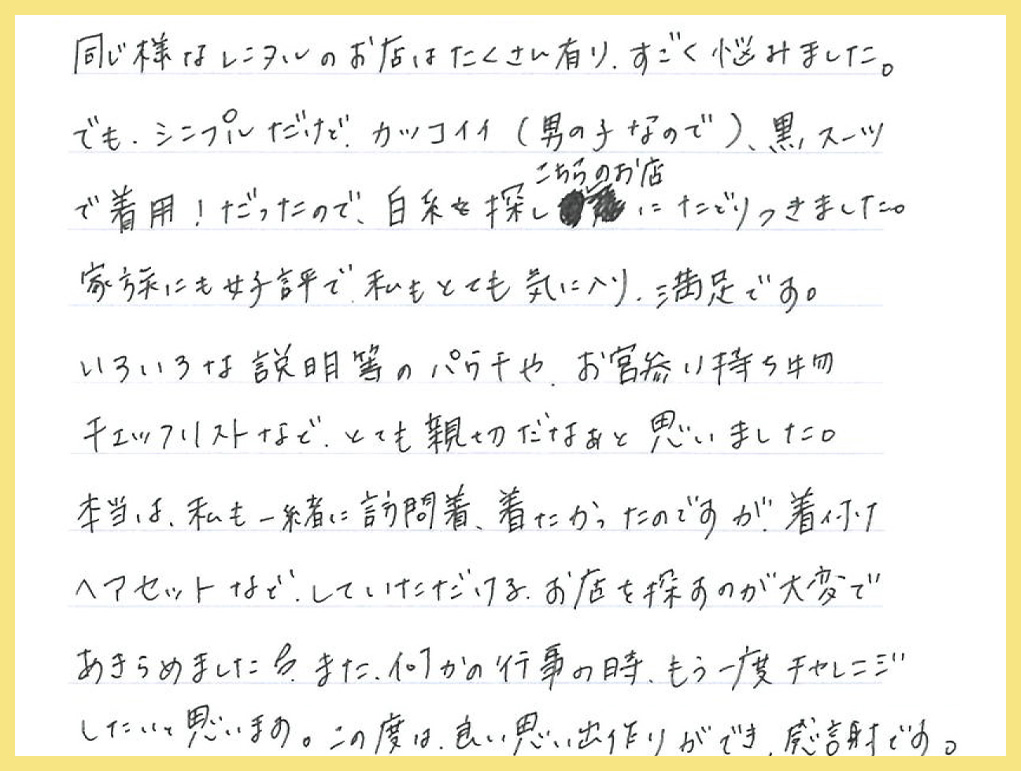 同じ様なレンタルのお店はたくさん有り、すごく悩みました。
でも、シンプルだけど、カッコイイ(男の子なので)、黒、スーツ
こちらのお店
で着用!だったので、白糸を探し にたどりつきました。
家族にも好評で、私もとても気に入り、満足です。
いろいろな説明等のパウチや、お宮参り持ち物
チェックリストなど、とても親切だなぁと思いました。
本当は、私も一緒に訪問着、着たかったのですが、着付け
ヘアセットなど、していただける、お店を探すのが大変で
あきらめました。また、何かの行事の時、もう一度チャレンジ
したいと思います。この度は、良い思い出作りができ、感謝です。